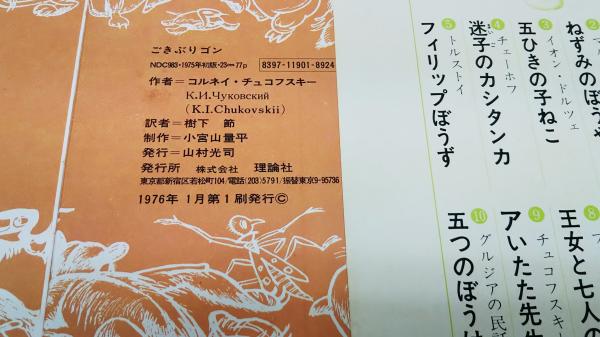 ごきぶりゴン
NDC983・1975年初版・23cm・77p
8397-11901-8924
作者＝コルネイ・チュコフスキー
К.И.Чуковский
(K.I.Chukovskii)
訳者＝樹下　節
制作＝小宮山量平
発行＝山村光司
発行所　株式会社　理論社
東京都新宿区若松町104/電話(203)5791/振替東京9-95736
1976年　1月第1刷発行©
ねずみのぼうや
3 イオン・ドルツェ
五ひきの子ねこ
4 チェーホフ
迷子のカシタンカ
まいご
5 トルストイ
フィリップぼうず
8
王女と七人の
9 チュコフスキー
アいたた先生
10 グルジアの民話
五つのぼうけ